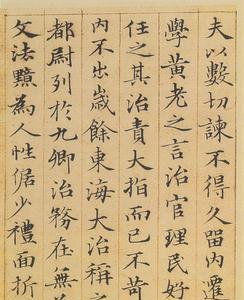 夫以數切諫不得久留内遷
學黃老之言治官理民好
任之其治責大指而已不苛
内不出歲餘東海大治稱之
都尉列於九卿治務在無
文法黯為人性倨少禮面折